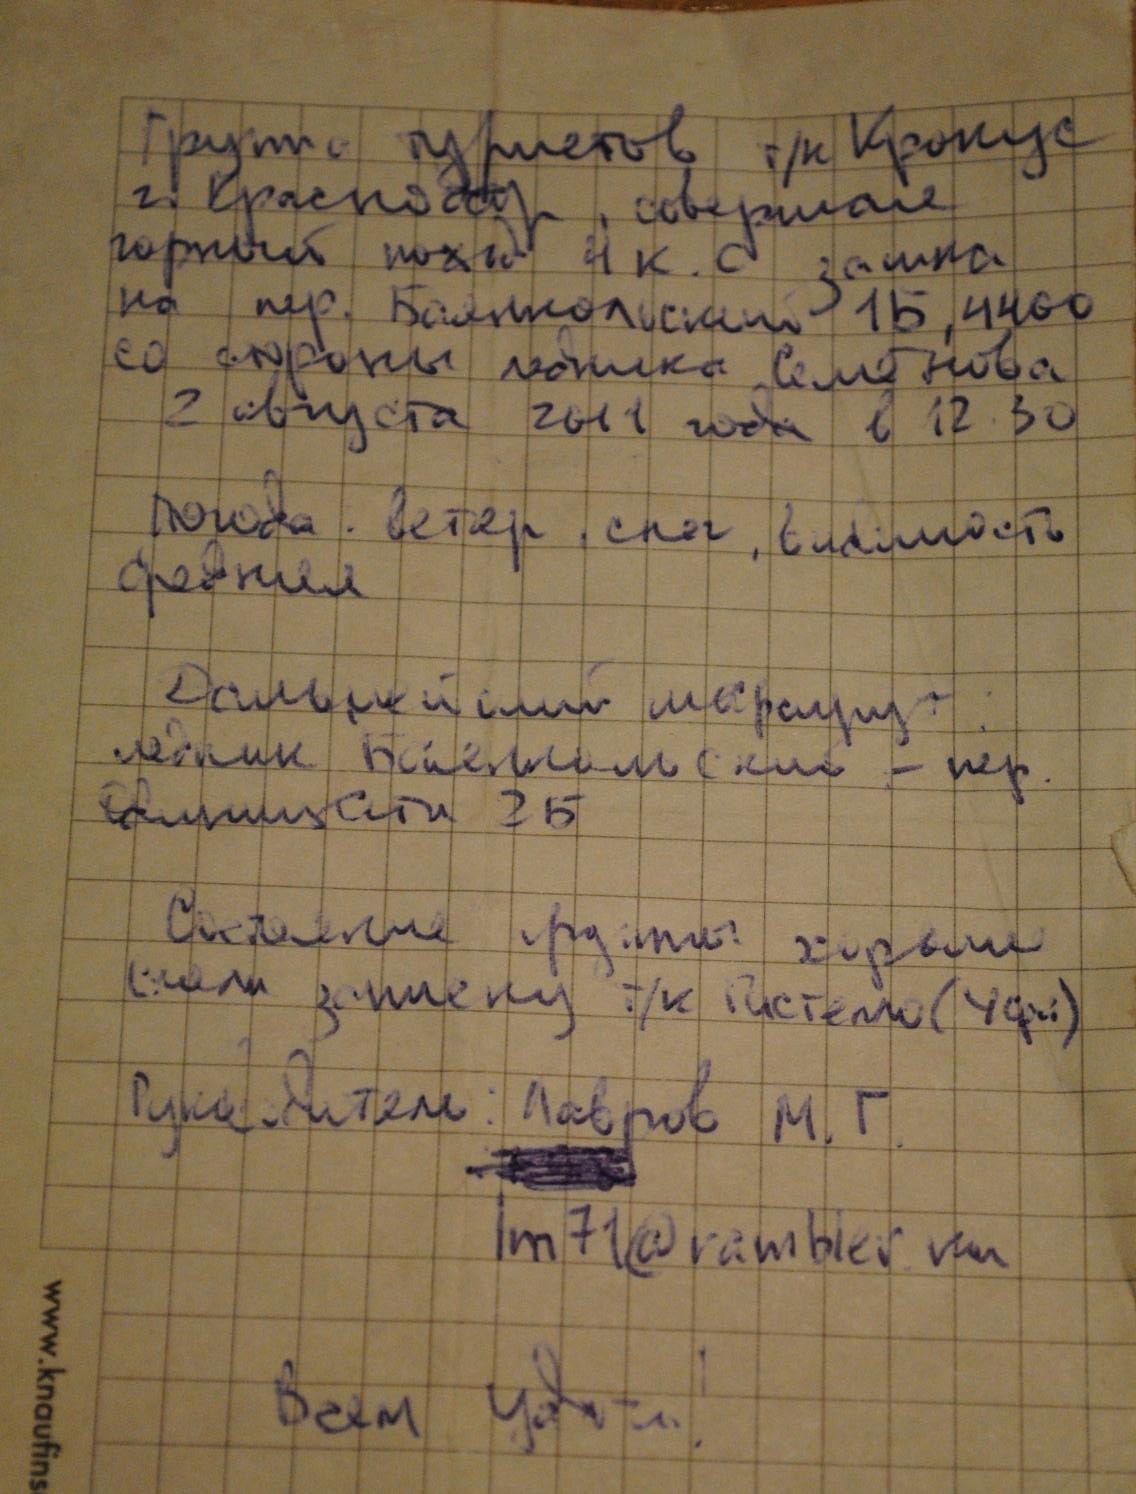 Группа туристов т/к Крокус
г. Краснодар, совершая
горный поход 4 к.с зашла
на пер. Баянкольский 1Б, 4400
со стороны ледника Семёнова
2 августа 2011 года в 12.30
Погода: ветер, снег, видимость
средняя
Дальнейший маршрут:
ледник Баянкольский - пер.
2Б
Состояние группы хорошее
сняли записку т/к Гастелло (Уфа)
Руководитель: Лавров М.Г.
lm71@rambler.ru
Всем удачи!
www.knaufins